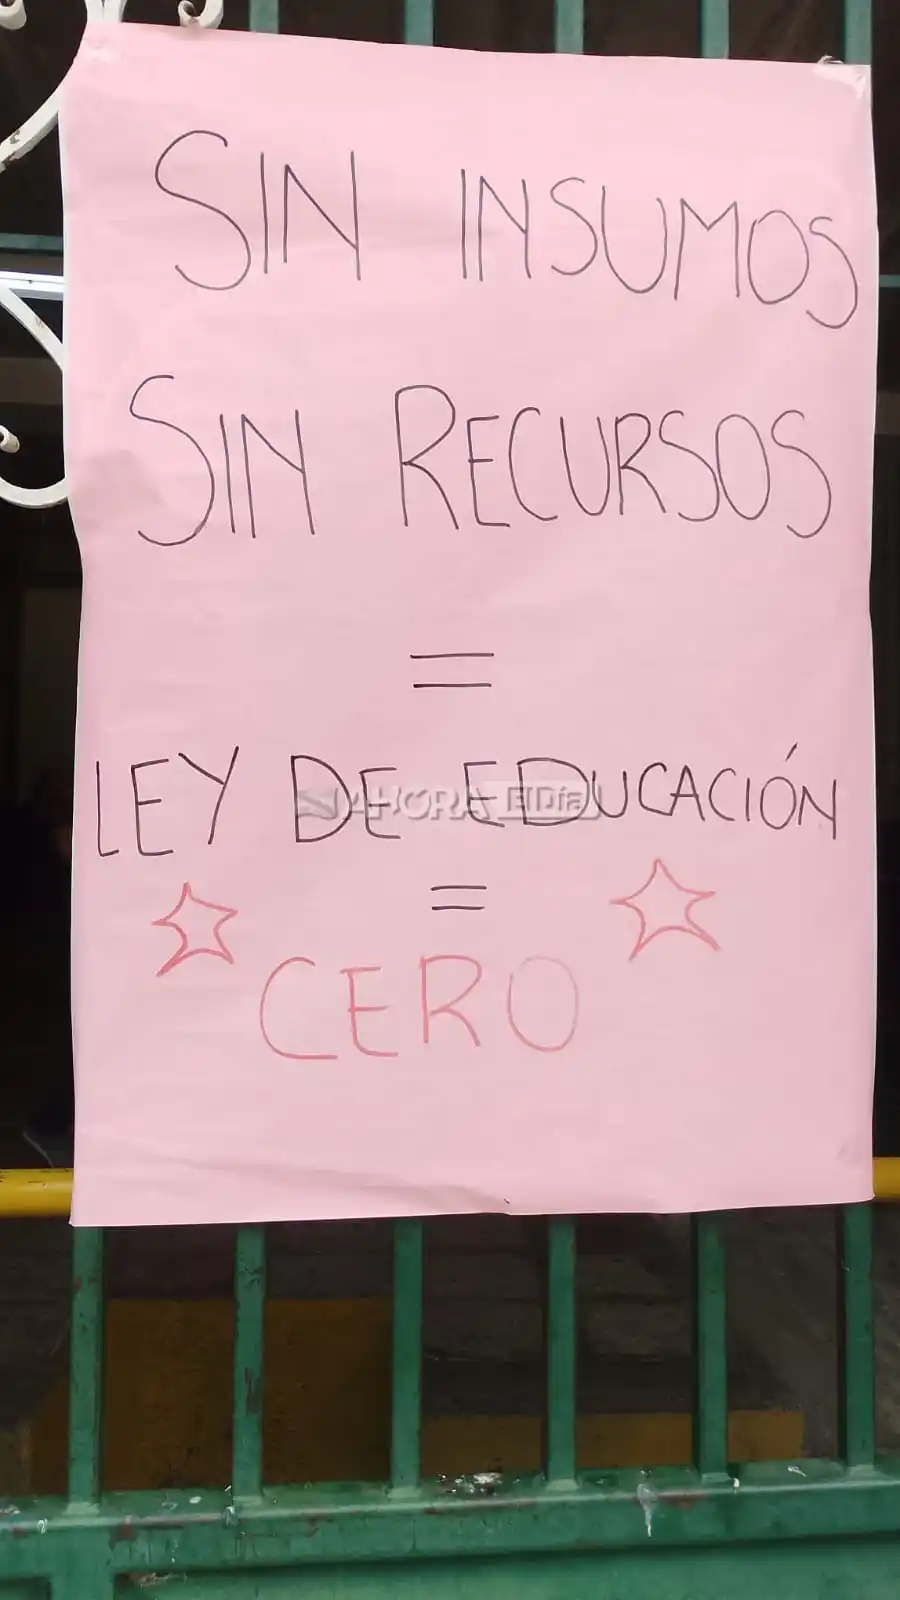 SIN INSUMOS
SIN RECURSOS
=
LEY DE EDUCACIÓN
=
CERO
AHORA ElDía